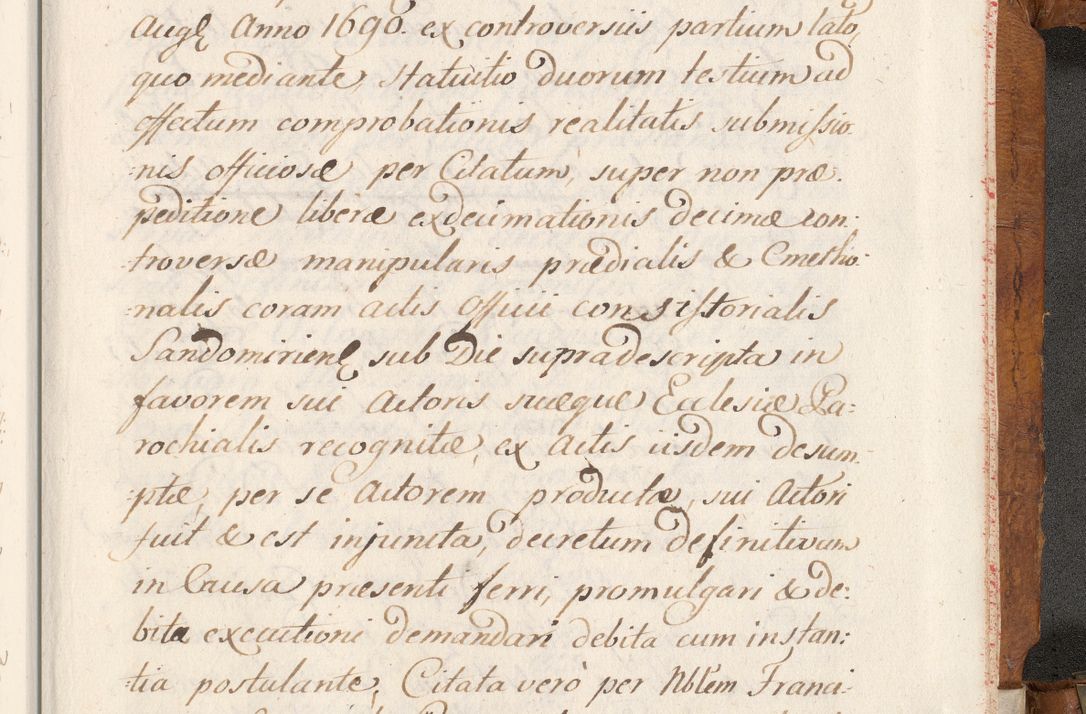 Augę Anno 1690. ex controversiis partium lato,
quo mediante, statuitio duorum testium ad
effectum comprobationis realitatis submissio
:nis officiosæ per Citatum, super non præ.
peditione liberæ exdecimationis decimæ con:
:troversæ manipularis prædialis & Cmetho:
:nalis coram actis Officii consistorialis
Sandomirienę sub Die supradescripta in
favorem sui Actoris suæque Ecclesiæ Pa:
rochialis recognitæ, ex Actis iisdem desum
:ptæ, per se Actorem productæ, sui Actori
fuit & est injuncta, decretum definitivum
in Causa præsenti ferri, promulgari & de:
bita executioni demandari debita cum instan:
:tia postulante, Citata verò per Nblem Franci